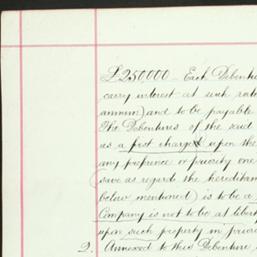 £250,000 — Each Debentu
carry interest at such rate
annum) and to be payable
The Debentures of the said
as a first charge upon the
any preference or priority one
(save as regards the hereditam
below mentioned) is to be a
Company is not to be at libert
upon such property in priori
2. Annexed to this Debenture